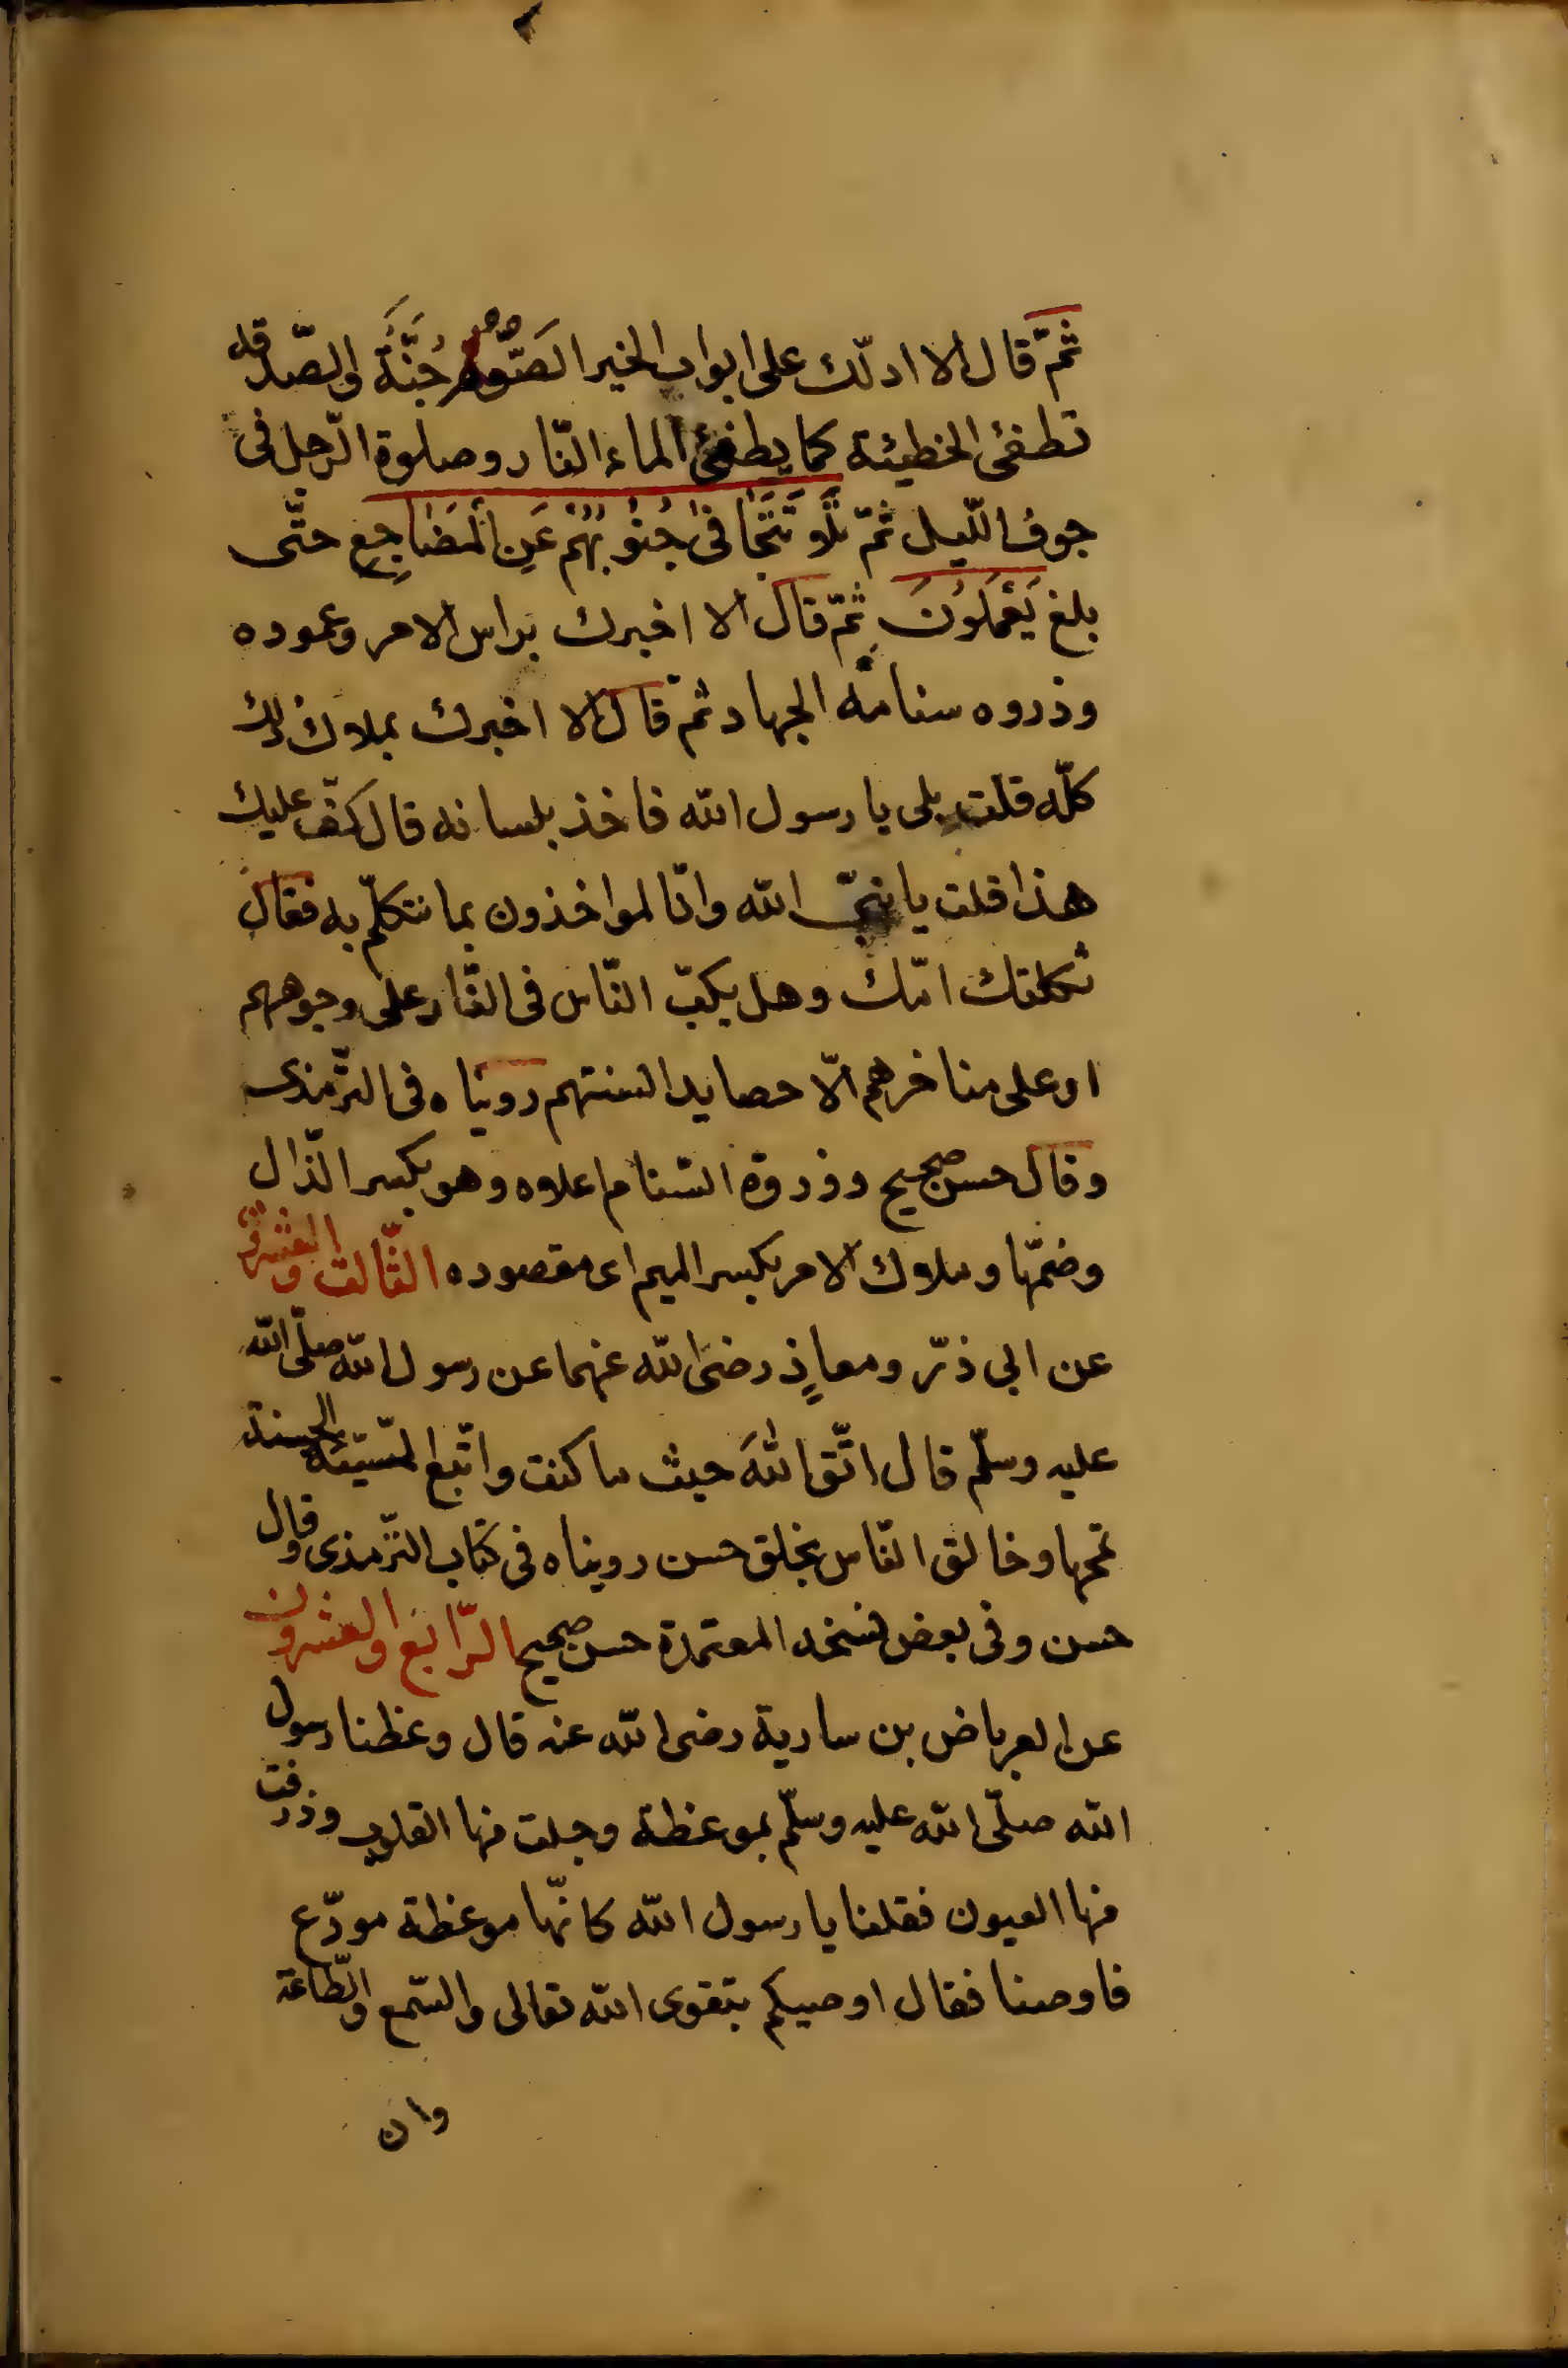 ثمّ قال الا ادلّك على ابواب الخير الصَّومُ جُنَّةٌ والصّدقه
تطفئ الخطيئة كما يطفئ الماء النّار وصلوة الرّجل فى
جوف اللّيل ثمّ تلَا تَتَجَافىٰ جُنُوبُهُمْ عَنِ الْمَضَاجِعِ حتّى
بلغ يَعْمَلُونَ ثمّ قال الا اخبرك براس الامر وعموده
وذروه سنامه الجهاد ثمّ قال الا اخبرك بملاك ذلك
كلّه قلت بلى يا رسول الله فاخذ بلسانه قال كفّ عليك
هذا قلت يا نبىّ الله وانّا لمواخذون بما نتكلّم به فقال
ثكلتك امّك وهل يكبّ النّاس فى النّار على وجوههم
او على مناخرهم الّا حصايد السنتهم رويناه فى التّرمذى
وقال حسن صحيح وذروة السّنام اعلاه وهو بكسر الذّال
وضمّها وملاك الامر بكسر الميم اى مقصوده الثّالث والعشرون
عن ابى ذرّ ومعاذٍ رضى الله عنهما عن رسول الله صلّى الله
عليه وسلّم قال اتّق اللهَ حيث ما كنت واتبع السّيّئة الحسنة
تمحها وخالق النّاس بخلق حسن رويناه فى كتاب التّرمذى وقال
حسن وفى بعض نسخه المعتمدة حسن صحيح الرّابع والعشرون
عن العرباض بن سارية رضى الله عنه قال وعظنا رسول
الله صلّى الله عليه وسلّم بموعظة وجلت منها القلوب وذرفت
منها العيون فقلنا يا رسول الله كانّها موعظة مودّع
فاوصنا فقال اوصيكم بتقوى الله تعالى والسّمع والطّاعة
وان